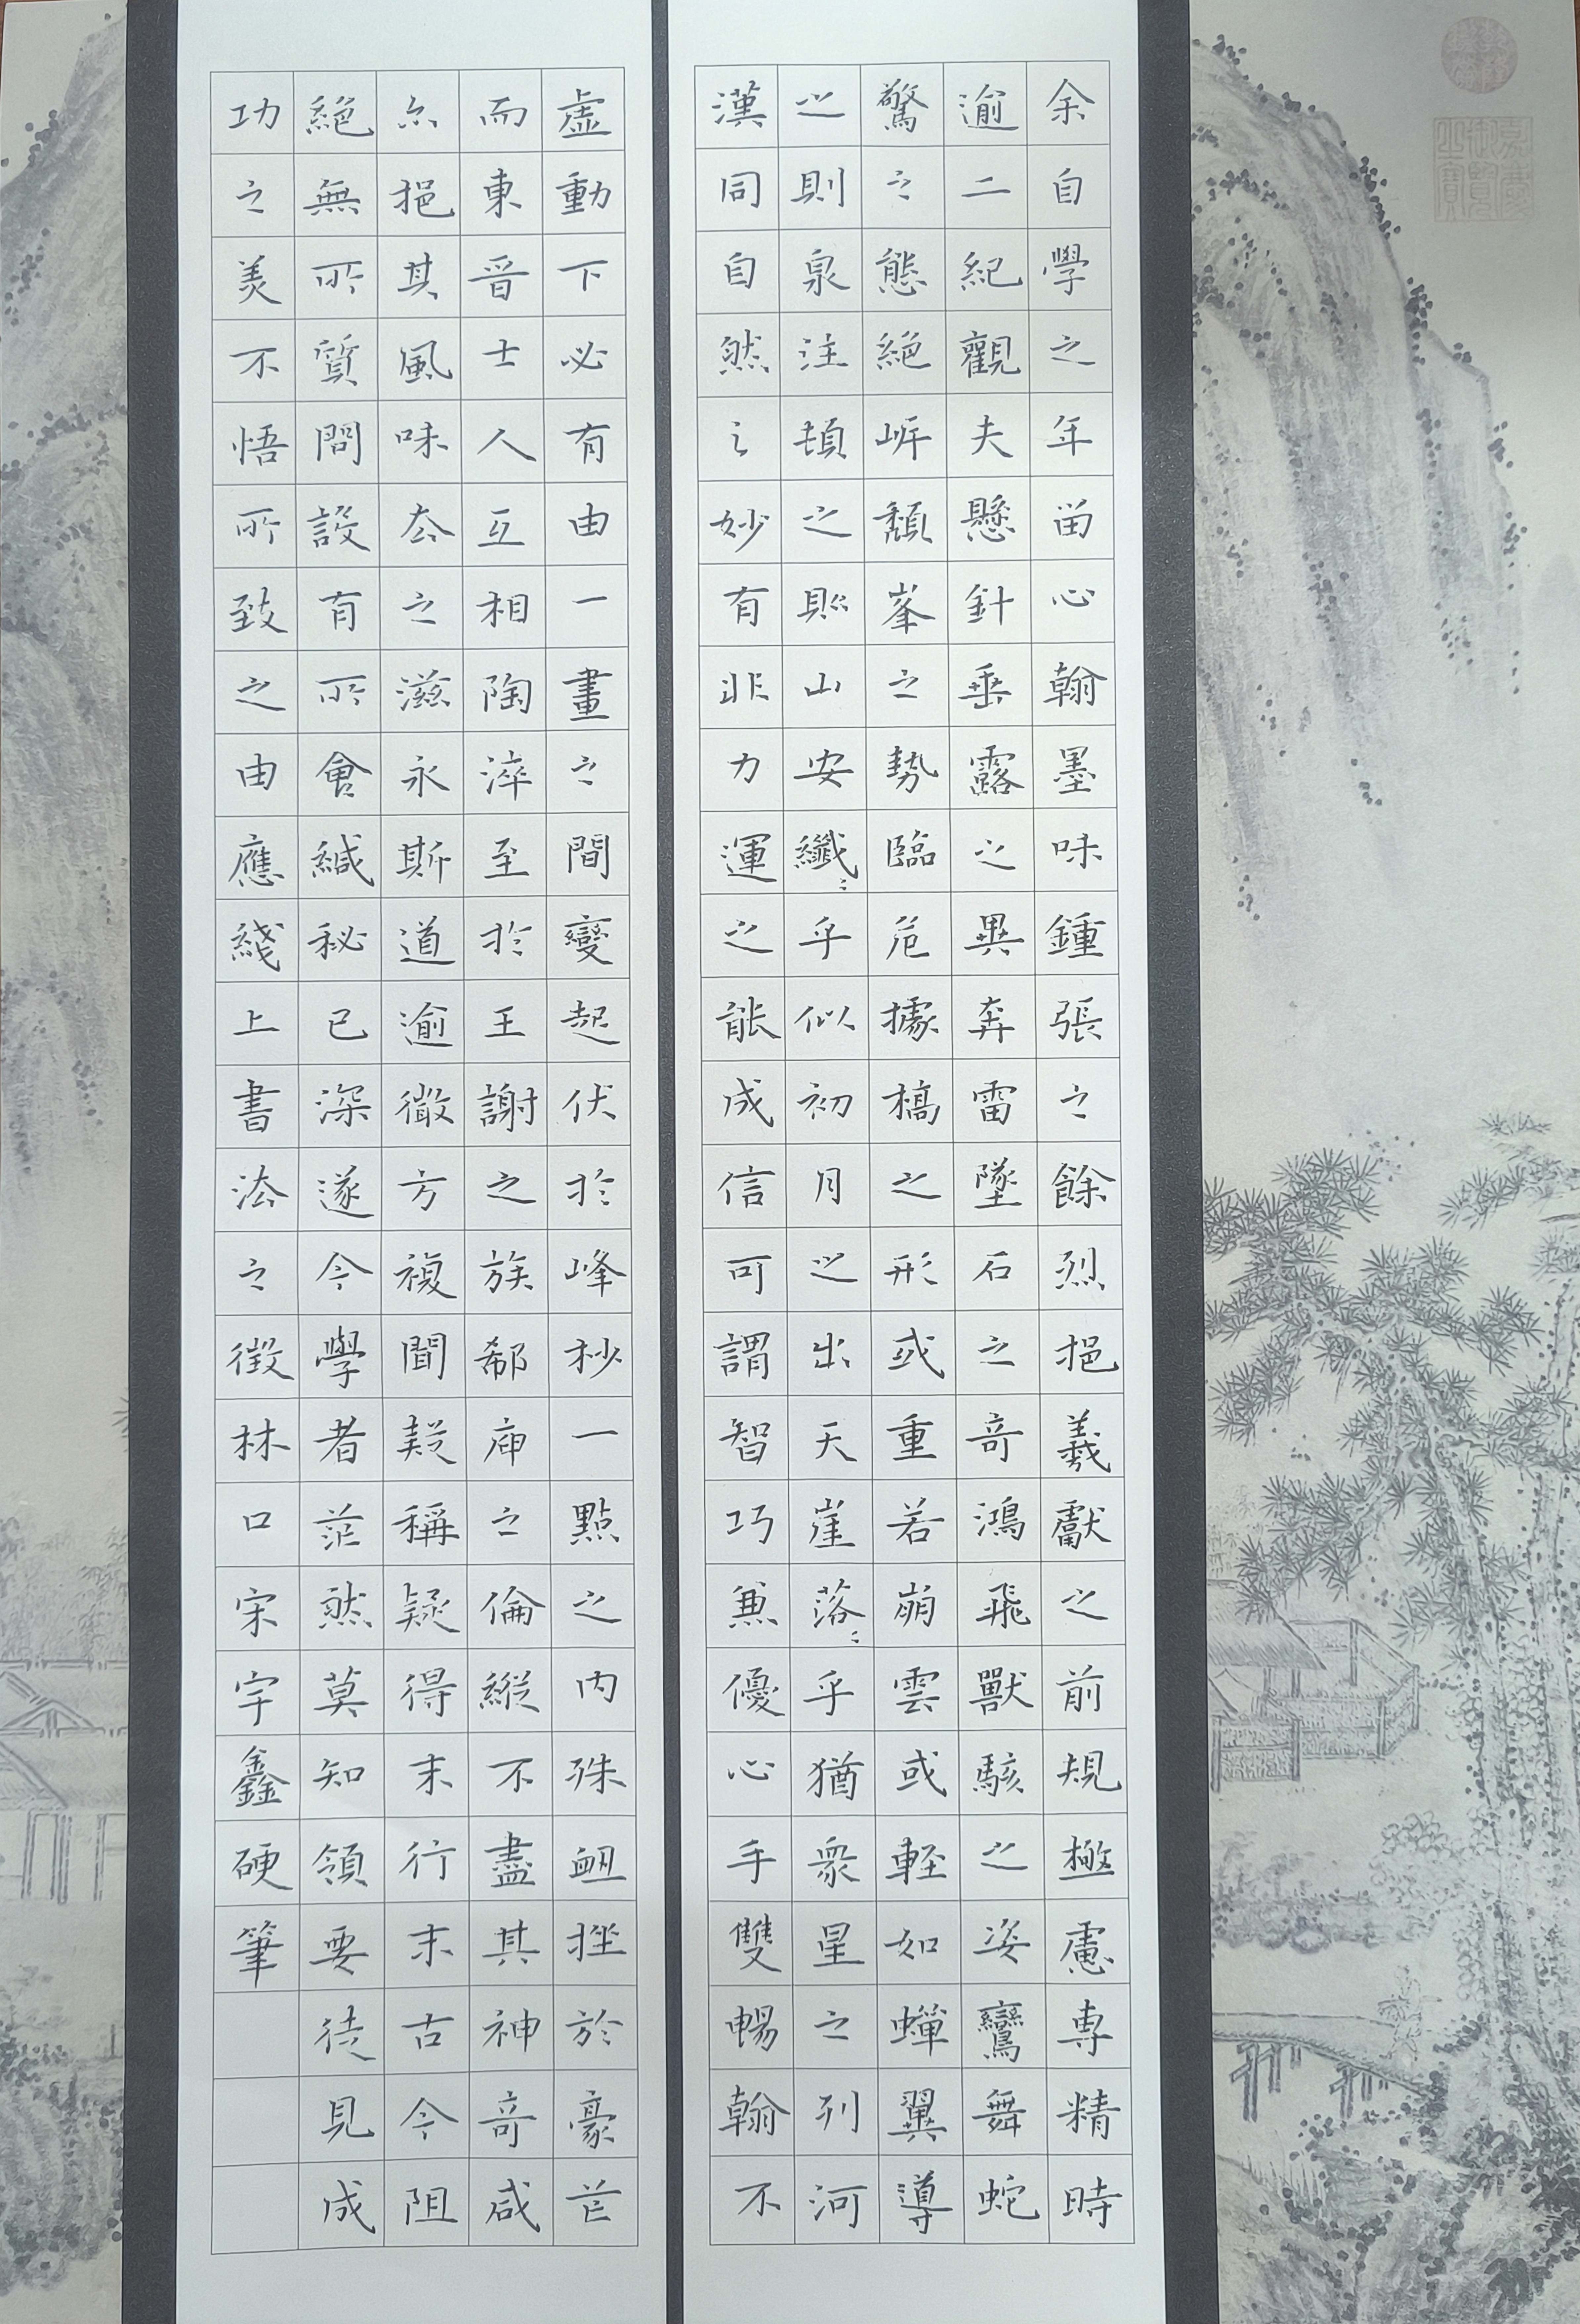 余自學之年留心翰墨味鍾張之餘烈挹羲獻之前規極慮専精時
逾二紀觀夫懸針垂露之異奔雷墜石之奇鴻飛獸駭之姿鸞舞蛇
驚之態絕岸頹峯之勢臨危據槁之形或重若崩雲或輕如蟬翼導
之則泉注頓之則山安纖〻乎似初月之出天崖落〻乎猶衆星之列河
漢同自然之妙有非力運之能成信可謂智巧兼優心手雙暢翰不
虛動下必有由一畫之間變起伏於峰杪一點之內殊衄挫於豪芒
而東晉士人互相陶淬至於王謝之族郗庾之倫縱不盡其神奇咸
亦挹其風味去之滋永斯道逾微方複聞疑稱疑得末行末古今阻
絕無所質問設有所會緘秘已深遂令學者茫然莫知領要徒見成
功之美不悟所致之由應綫上書法之徵林口宋宇鑫硬筆